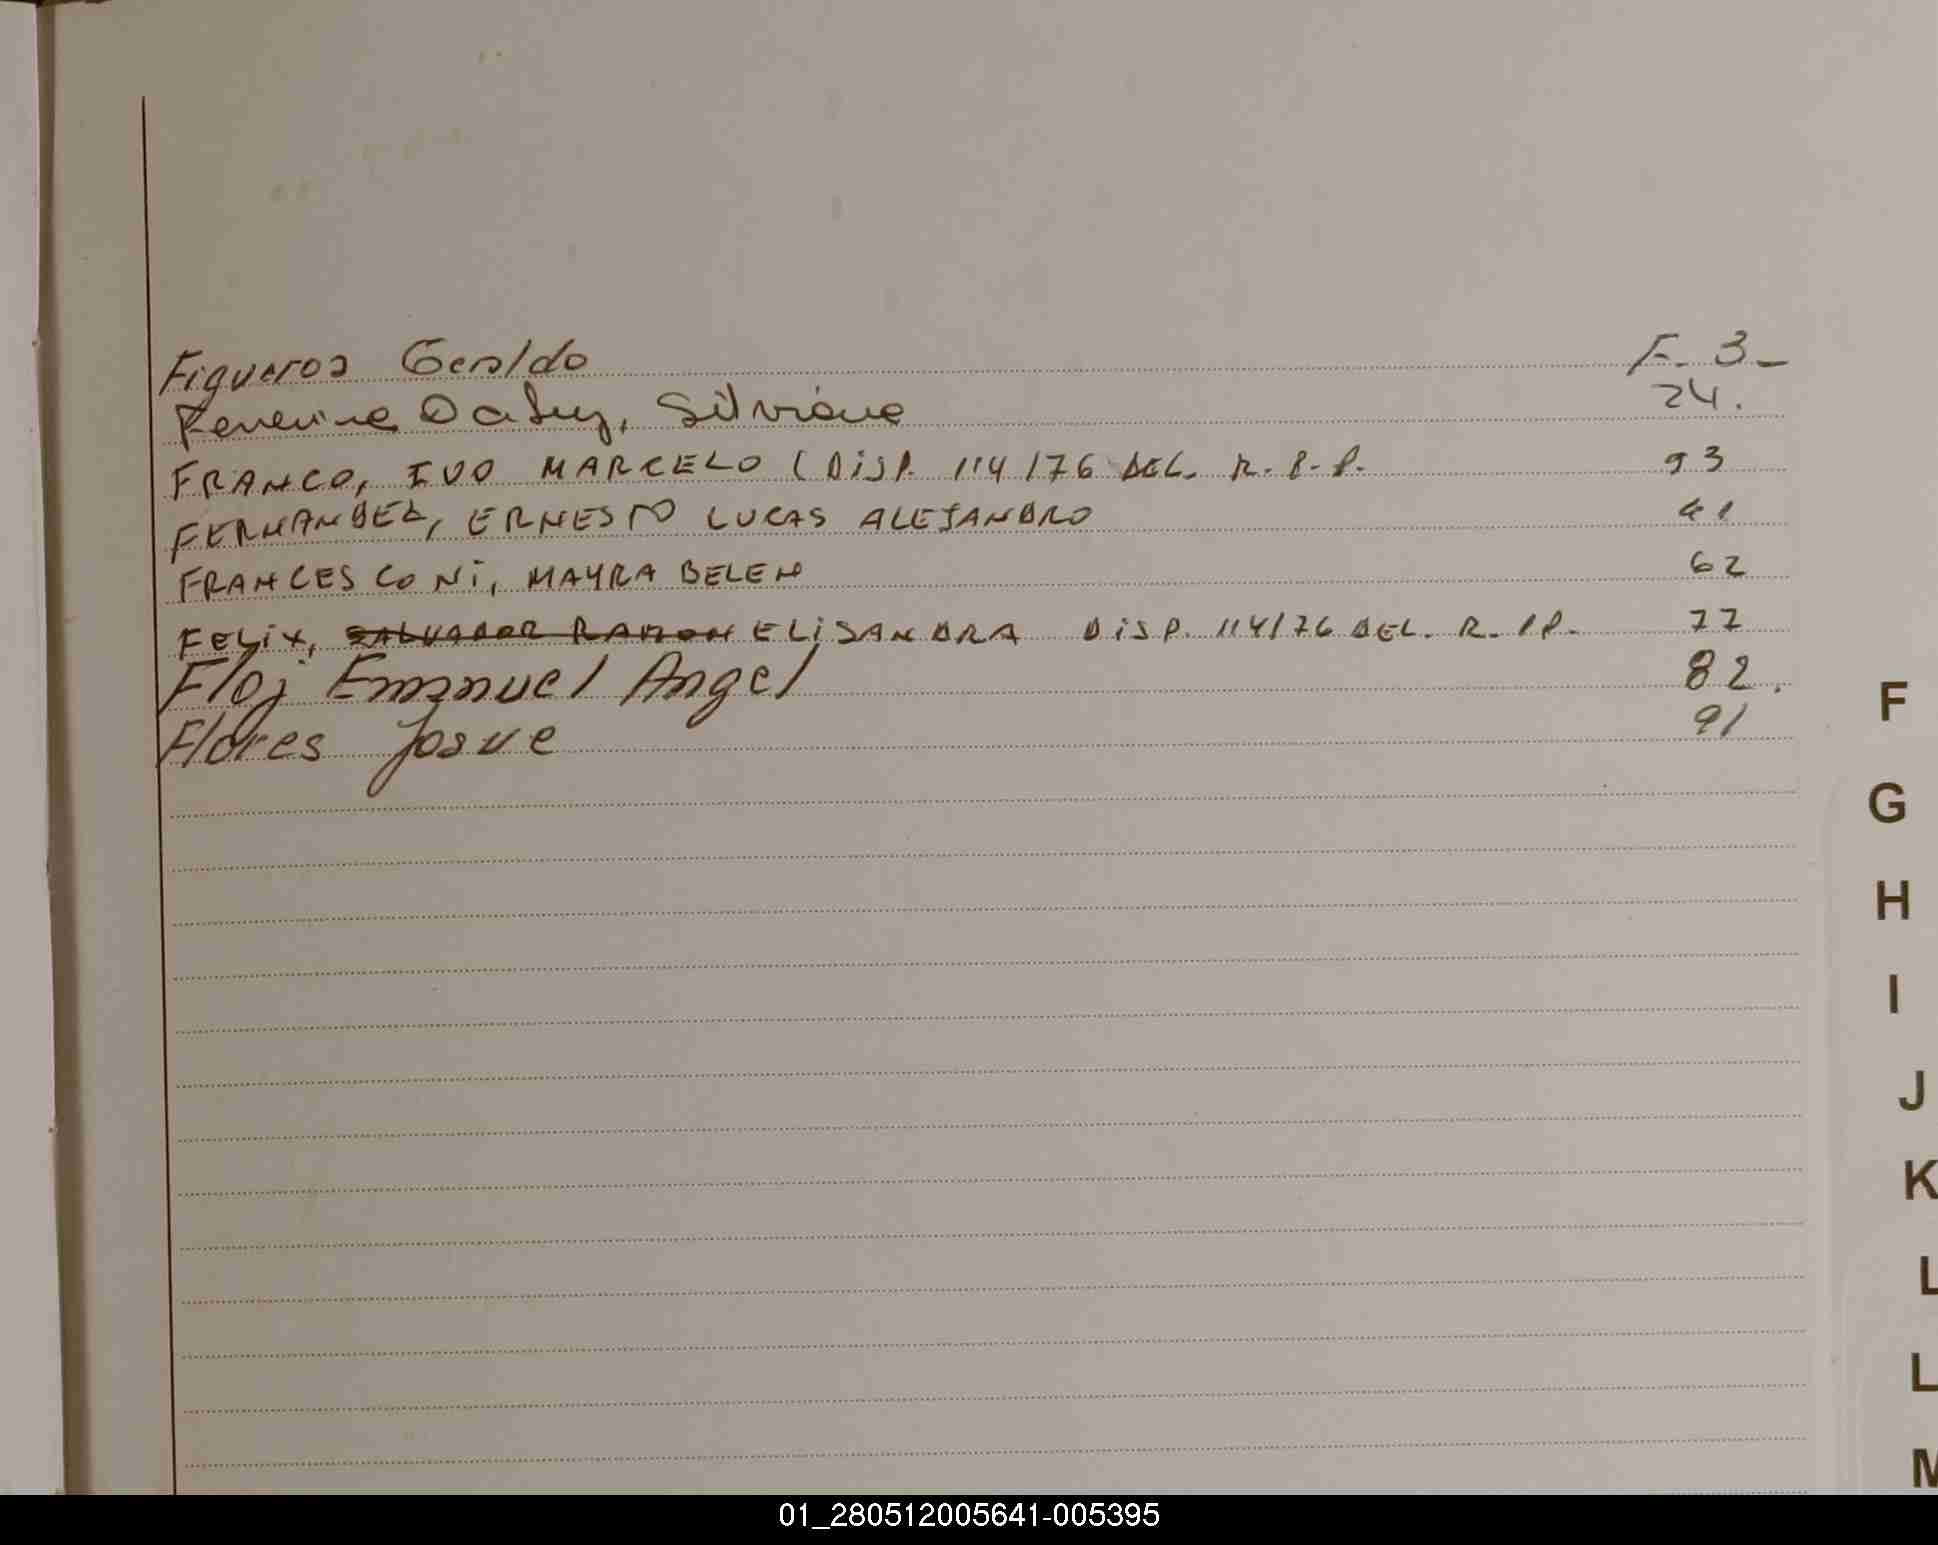 Figueroa Geraldo F. 3-
Silviane 24.
FRANCO, IVO MARCELO (DISP. 114/76 DEL. R. P. P. 93
FERNANDEZ, ERNESTO LUCAS ALEJANDRO 41
FRANCESCONI, MAYRA BELEN 62
FELIX, SALVADOR RAMON ELISANDRA DISP. 114/76 DEL. R. P. 77
Emanuel Angel 82.
Flores Josue 91
F
G
H
I
J
K
L
L
M
01_280512005641-005395